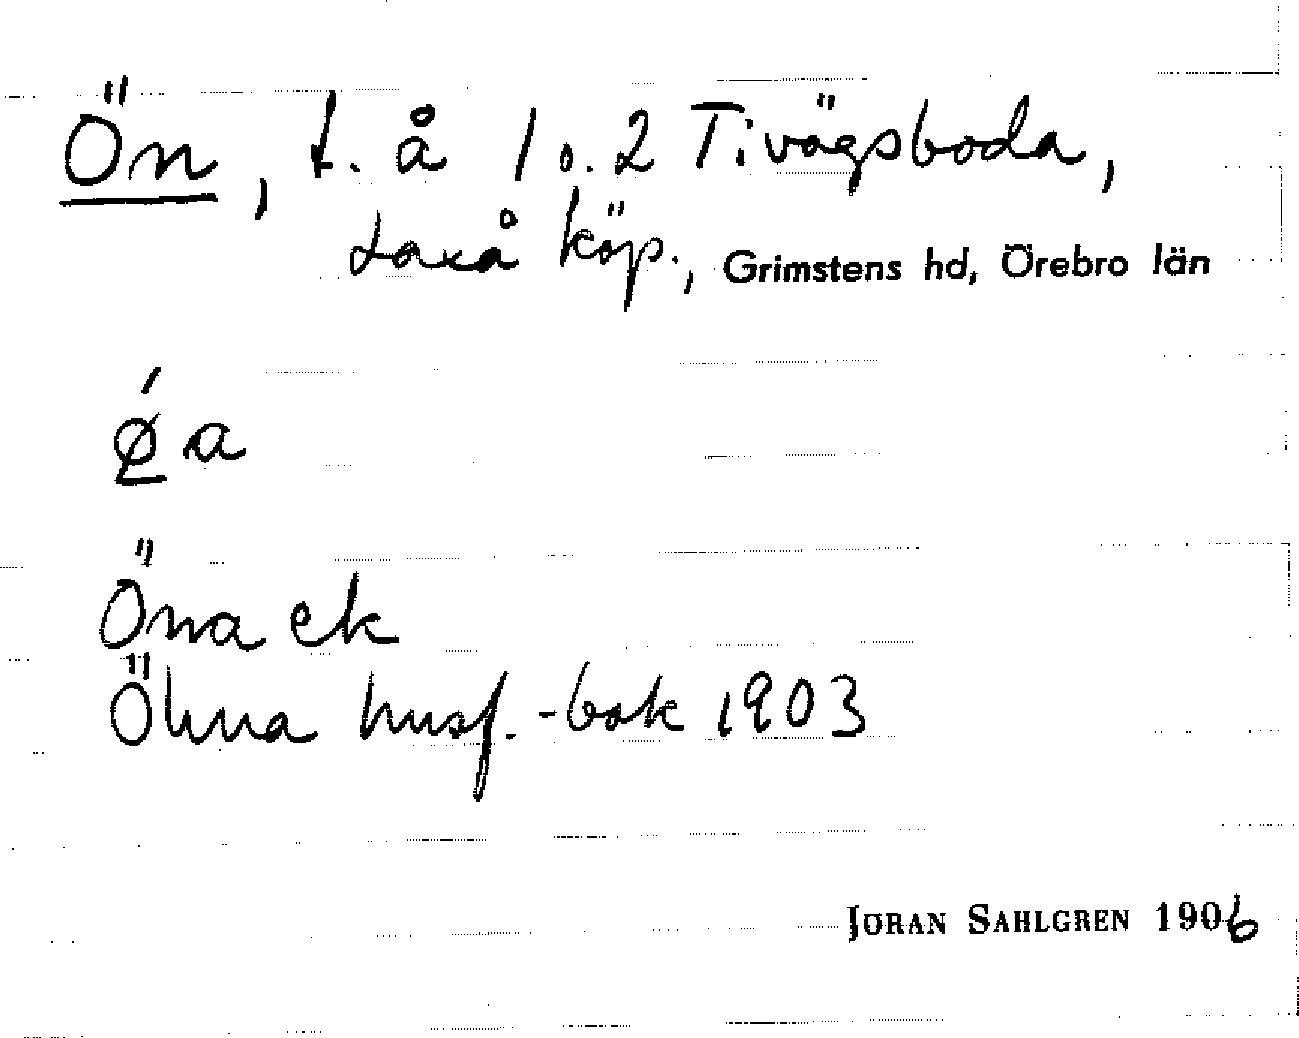 Ön, t. å 1 o. 2 Tivägsboda,
Laxå köp., Grimstens hd, Örebro län
ǿ̱ a
Öna ek
Öhna husf.-bok 1903
JÖRAN SAHLGREN 1906